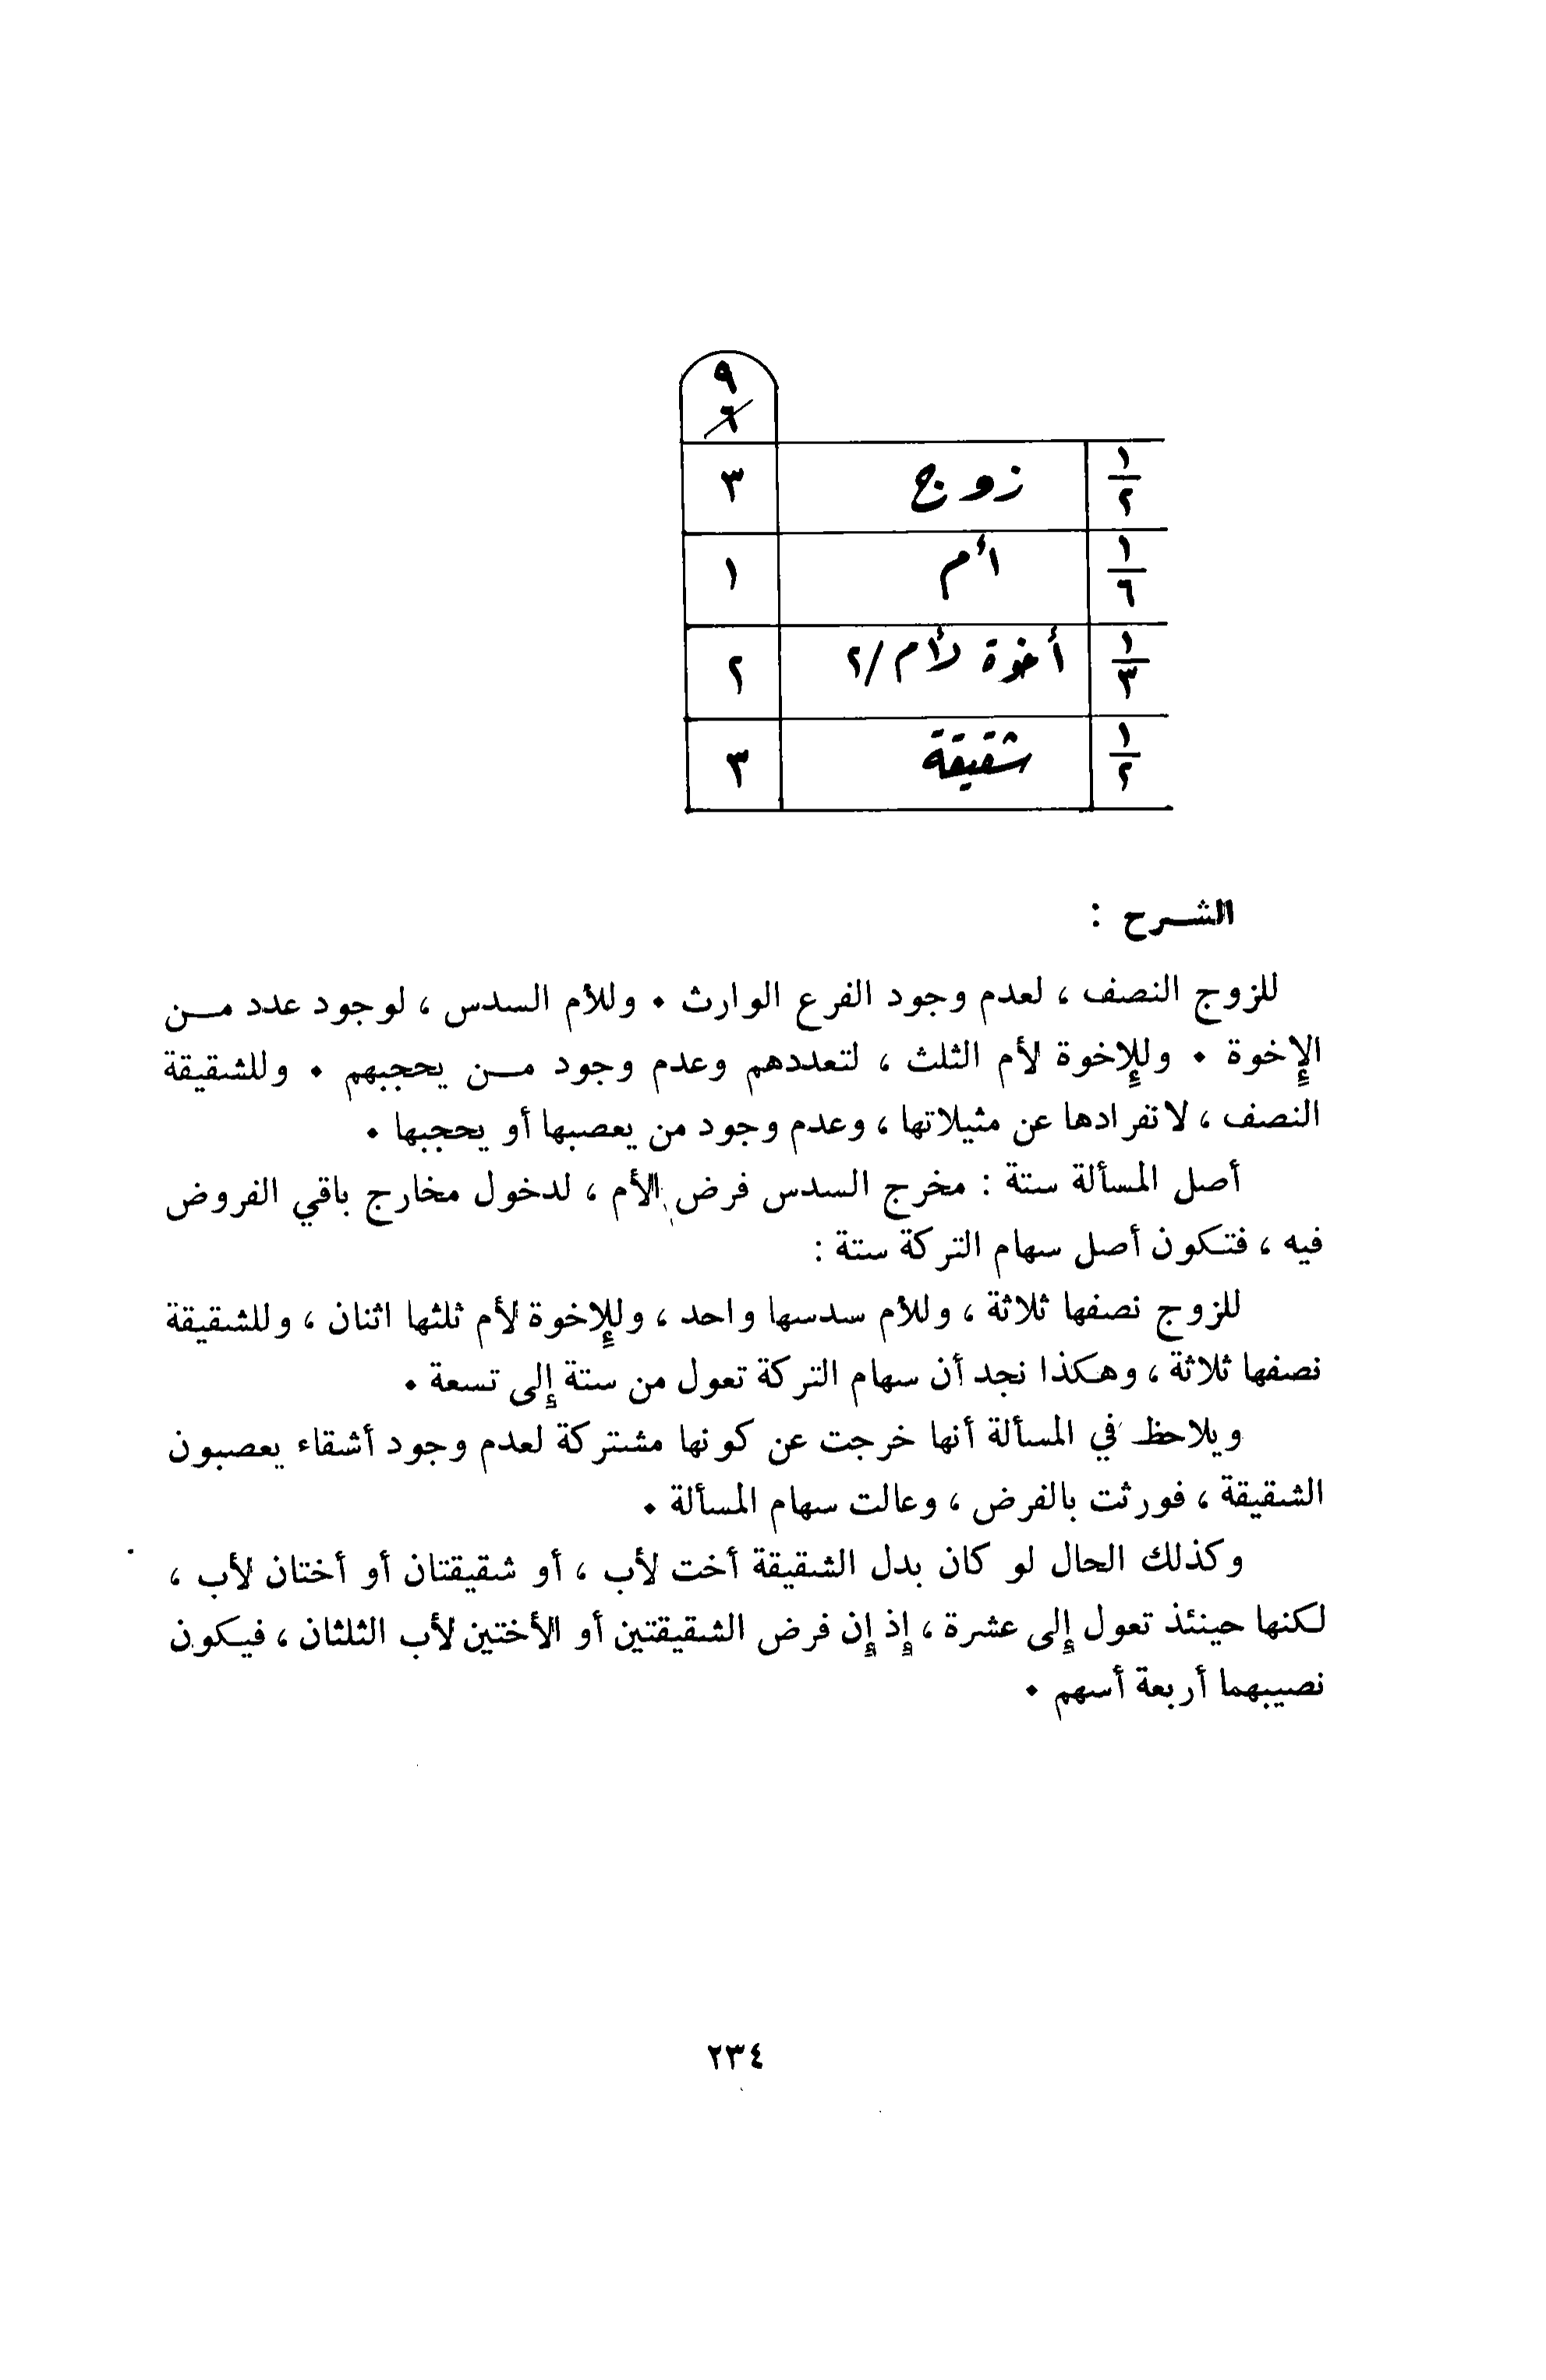 ٩
٦
١/٢ زوج ٣
١/٦ أم ١
١/٣ أخوة لأم/٢ ٢
١/٢ شقيقة ٣
الشرح :
للزوج النصف ، لعدم وجود الفرع الوارث . وللأم السدس ، لوجود عدد من
الإخوة . وللإخوة لأم الثلث ، لتعددهم وعدم وجود من يحجبهم . وللشقيقة
النصف ، لانفرادها عن مثيلاتها ، وعدم وجود من يعصبها أو يحجبها .
أصل المسألة ستة : مخرج السدس فرض الأم ، لدخول مخارج باقي الفروض
فيه ، فتكون أصل سهام التركة ستة :
للزوج نصفها ثلاثة ، وللأم سدسها واحد ، وللإخوة لأم ثلثها اثنان ، وللشقيقة
نصفها ثلاثة ، وهكذا نجد أن سهام التركة تعول من ستة إلى تسعة .
ويلاحظ في المسألة أنها خرجت عن كونها مشتركة لعدم وجود أشقاء يعصبون
الشقيقة ، فورثت بالفرض ، وعالت سهام المسألة .
وكذلك الحال لو كان بدل الشقيقة أخت لأب ، أو شقيقتان أو أختان لأب ،
لكنها حينئذ تعول إلى عشرة ، إذ إن فرض الشقيقتين أو الأختين لأب الثلثان ، فيكون
نصيبهما أربعة أسهم .
٢٣٤